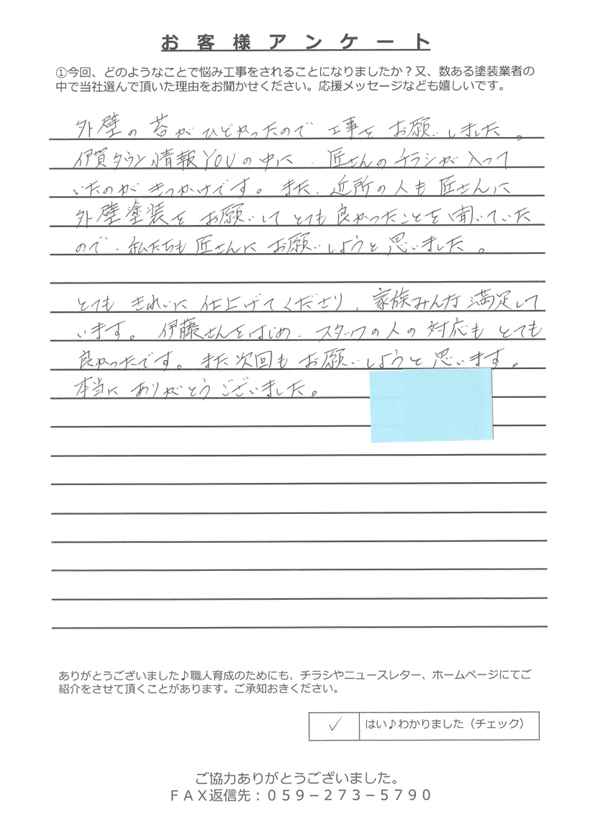 お客様アンケート
①今回、どのようなことで悩み工事をされることになりましたか？又、数ある塗装業者の
中で当社選んで頂いた理由をお聞かせください。応援メッセージなども嬉しいです。
外壁の苔がひどかったので工事をお願いしました。
伊賀タウン情報YOUの中に、匠さんのチラシが入って
いたのがきっかけです。また、近所の人も匠さんに
外壁塗装をお願いしてとても良かったことを聞いていた
ので、私たちも匠さんにお願いしようと思いました。
とてもきれいに仕上げてくださり、家族みんな満足して
います。伊藤さんをはじめ、スタッフの人の対応もとても
良かったです。また次回もお願いしようと思います。
本当にありがとうございました。
ありがとうございました♪職人育成のためにも、チラシやニュースレター、ホームページにてご
紹介をさせて頂くことがあります。ご承知おきください。
✓ はい♪わかりました（チェック）
ご協力ありがとうございました。
ＦＡＸ返信先：０５９－２７３－５７９０